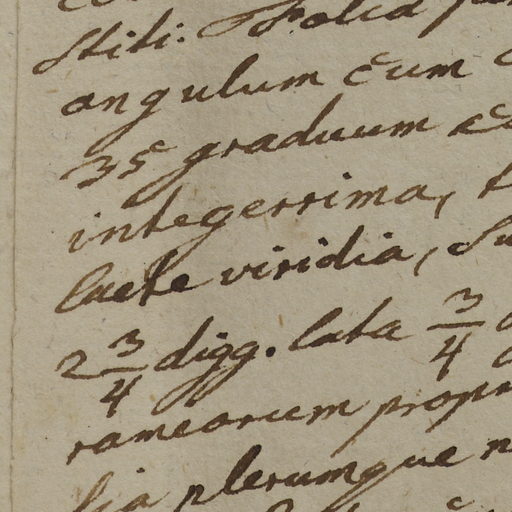 stiti. Folia
angulum cum
35 graduum
integerrima,
laete viridia,
2 3/4 digg. lata 3/4
rameorum
plerumque